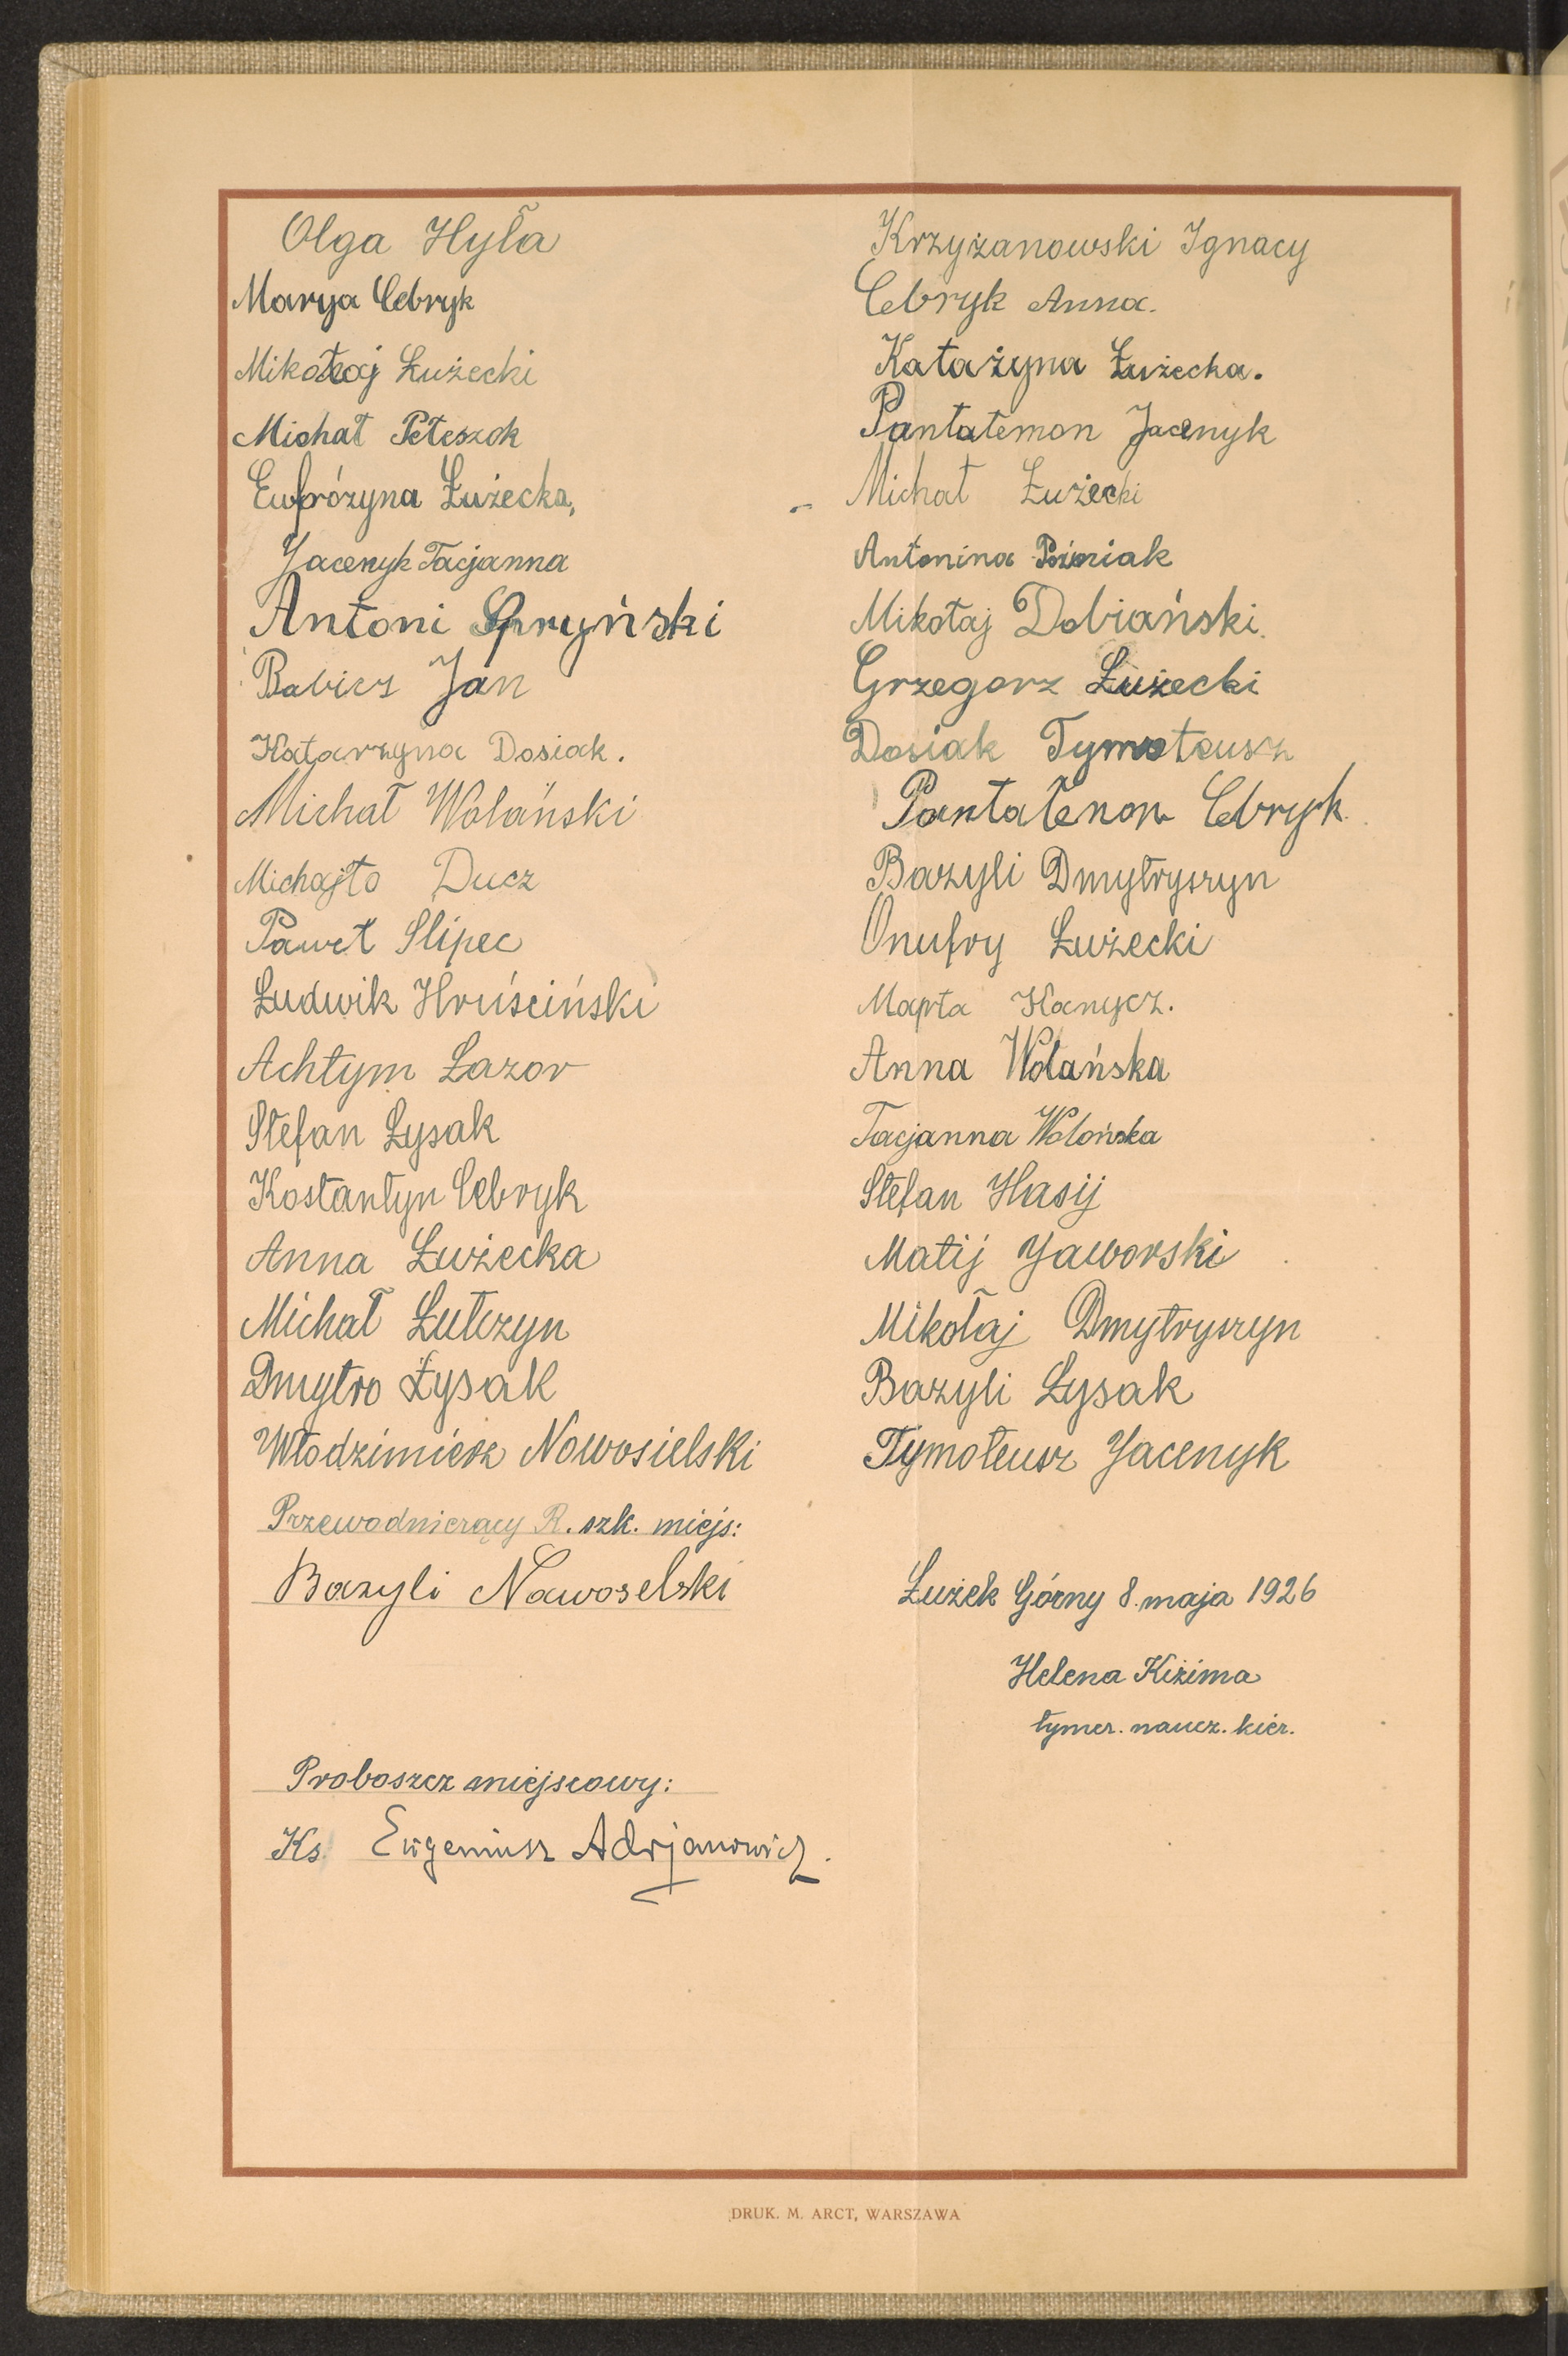 Olga Hyła
Marya Cebryk
Mikołaj Łużecki
Michał Peteszok
Eufrózyna Łużecka,
Jacenyk Tacjanna
Antoni Spryński
Babicz Jan
Katarzyna Dosiak.
Michał Wolański
Michajło Ducz
Paweł Slipec
Ludwik Hruściński
Achtym Łazor
Stefan Łysak
Kostantyn Cebryk
Anna Łużecka
Michał Lutczyn
Dmytro Łysak
Włodzimierz Nowosielski
Przewodniczący R. szk. miejs:
Bazyli Nawoselski
Proboszcz miejscowy:
Ks. Eugeniusz Adrjanowicz.
Krzyżanowski Ignacy
Cebryk Anna.
Katażyna Łużecka.
Pantałemon Jacenyk
Michał Łużecki
Antonina Poźniak
Mikołaj Dobiański.
Grzegorz Łużecki
Dosiak Tymoteusz
Pantałenon Cebryk.
Bazyli Dmytryszyn
Onufry Łużecki
Marta Kanycz.
Anna Wolańska
Tacjanna Wolońska
Stefan Hasij
Matij Jaworski
Mikołaj Dmytryszyn
Bazyli Łysak
Tymoteusz Jacenyk
Łużek Górny 8. maja 1926
Helena Kiżima
tymcz. naucz. kier.
DRUK. M. ARCT, WARSZAWA